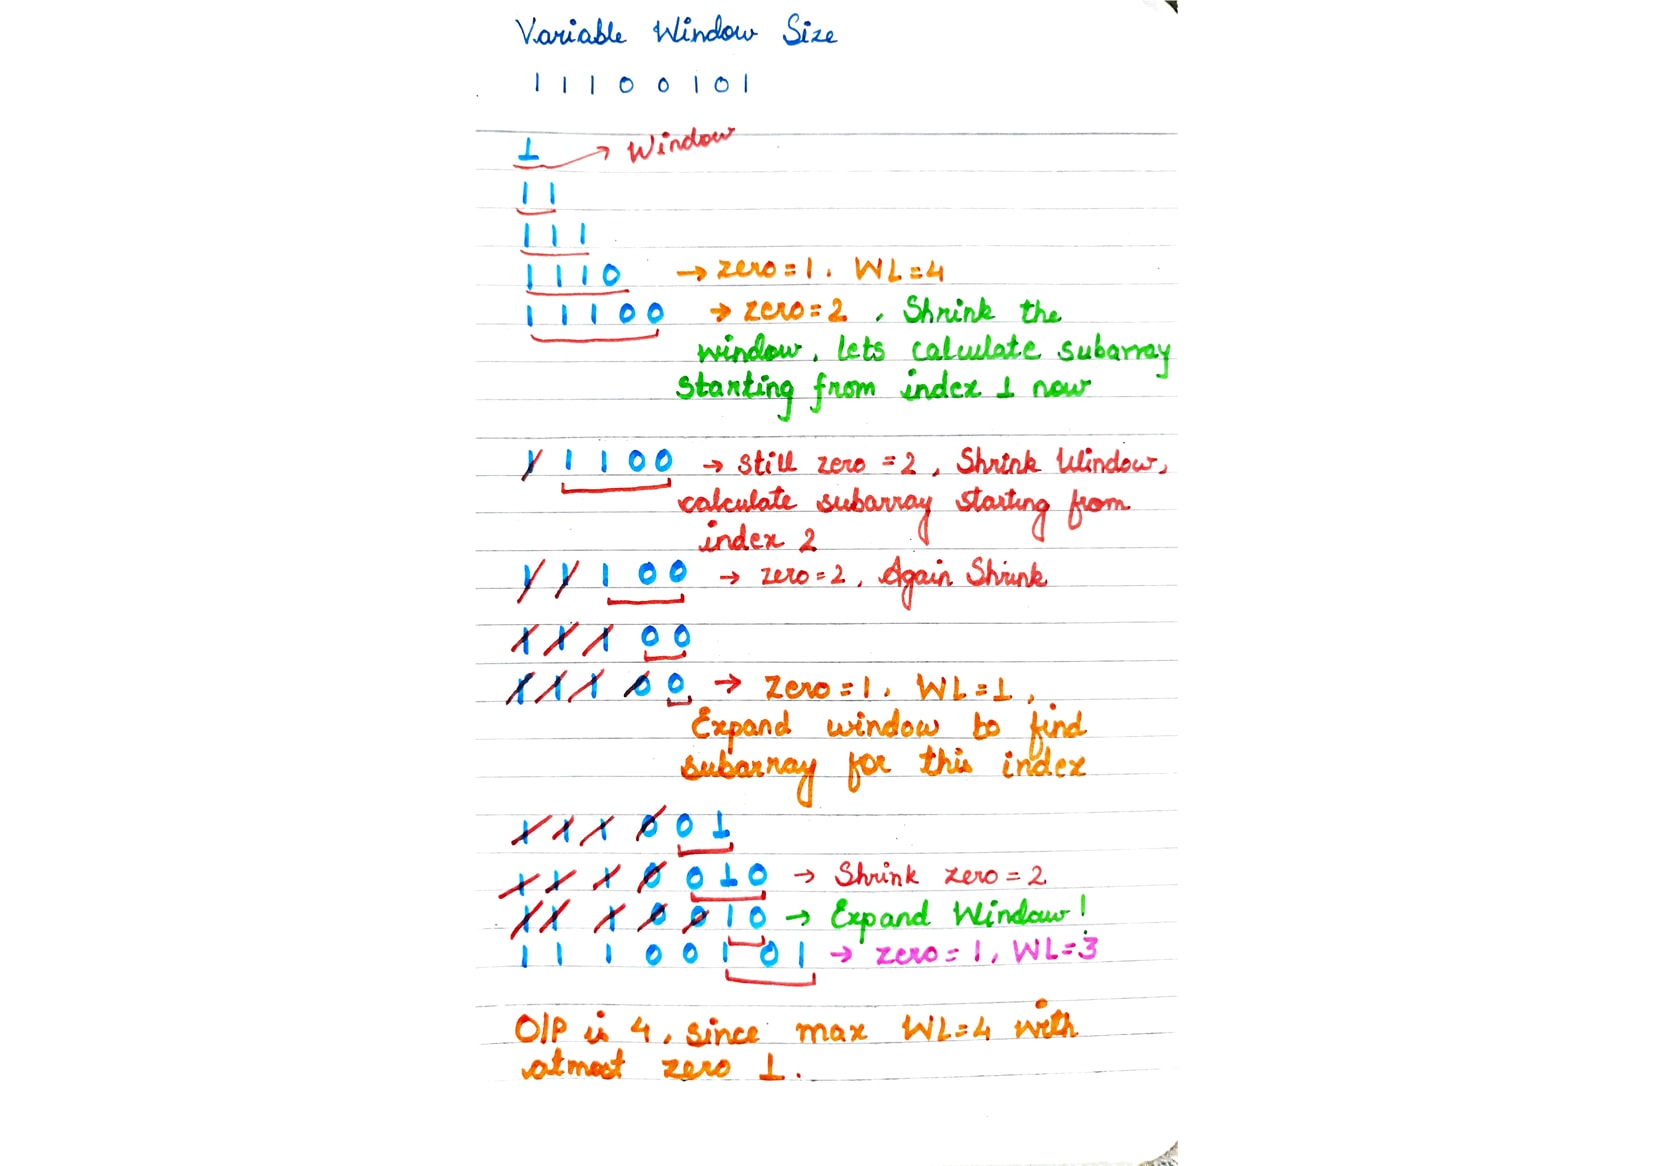 Variable Window Size
1 1 1 0 0 1 0 1
1 → Window
1 1
1 1 1
1 1 1 0 → zero = 1, WL = 4
1 1 1 0 0 → zero = 2, Shrink the
window, lets calculate subarray
starting from index 1 now
1 1 1 0 0 → still zero = 2, Shrink Window,
calculate subarray starting from
index 2
1 1 1 0 0 → zero = 2, Again Shrink
1 1 1 0 0
1 1 1 0 0 → zero = 1, WL = 1,
Expand window to find
subarray for this index
1 1 1 0 0 1
1 1 1 0 0 1 0 → Shrink zero = 2
1 1 1 0 0 1 0 → Expand Window!
1 1 1 0 0 1 0 1 → zero = 1, WL = 3
O/P is 4, since max WL = 4 with
atmost zero 1.